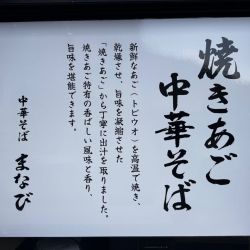 焼きあご
中華そば
新鮮なあご(トビウオ)を高温で焼き、
乾燥させ、旨味を凝縮させた
「焼きあご」から丁寧に出汁を取りました。
焼きあご特有の香ばしい風味と香り、
旨味を堪能できます。
中華そば まなび